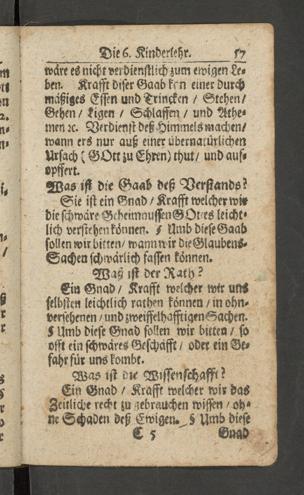 Die 6. Kinderlehr. 57
wäre es nicht verdienstlich zum ewigen Le-
ben. Krafft diser Gaab kan einer durch
mäßiges Essen und Trincken / Stehen /
Gehen / Ligen / Schlaffen / und Athe-
men ꝛc. Verdienst deß Himmels machen /
wann ers nur auß einer übernatürlichen
Ursach (GOtt zu Ehren) thut / und auf-
opffert.
Was ist die Gaab deß Verstands?
Sie ist ein Gnad / Krafft welcher wir
die schwäre Geheimnussen GOttes leicht-
lich verstehen können. § Umb diese Gaab
sollen wir bitten / wann wir die Glaubens-
Sachen schwärlich fassen können.
Waß ist der Rath?
Ein Gnad / Krafft welcher wir uns
selbsten leichtlich rathen können / in ohn-
versehenen / und zweiffelhafftigen Sachen.
§ Umb diese Gnad sollen wir bitten / so
offt ein schwäres Geschäfft / oder ein Ge-
fahr für uns kombt.
Was ist die Wissenschafft?
Ein Gnad / Krafft welcher wir das
Zeitliche recht zu gebrauchen wissen / oh-
ne Schaden deß Ewigen. § Umb diese
C 5 Gnad